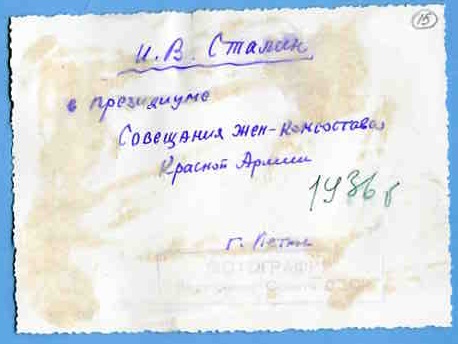 15
И. В. Сталин
в президиуме
Совещания жен-комсостава
Красной Армии
1936 г
г.
ФОТОГРАФ